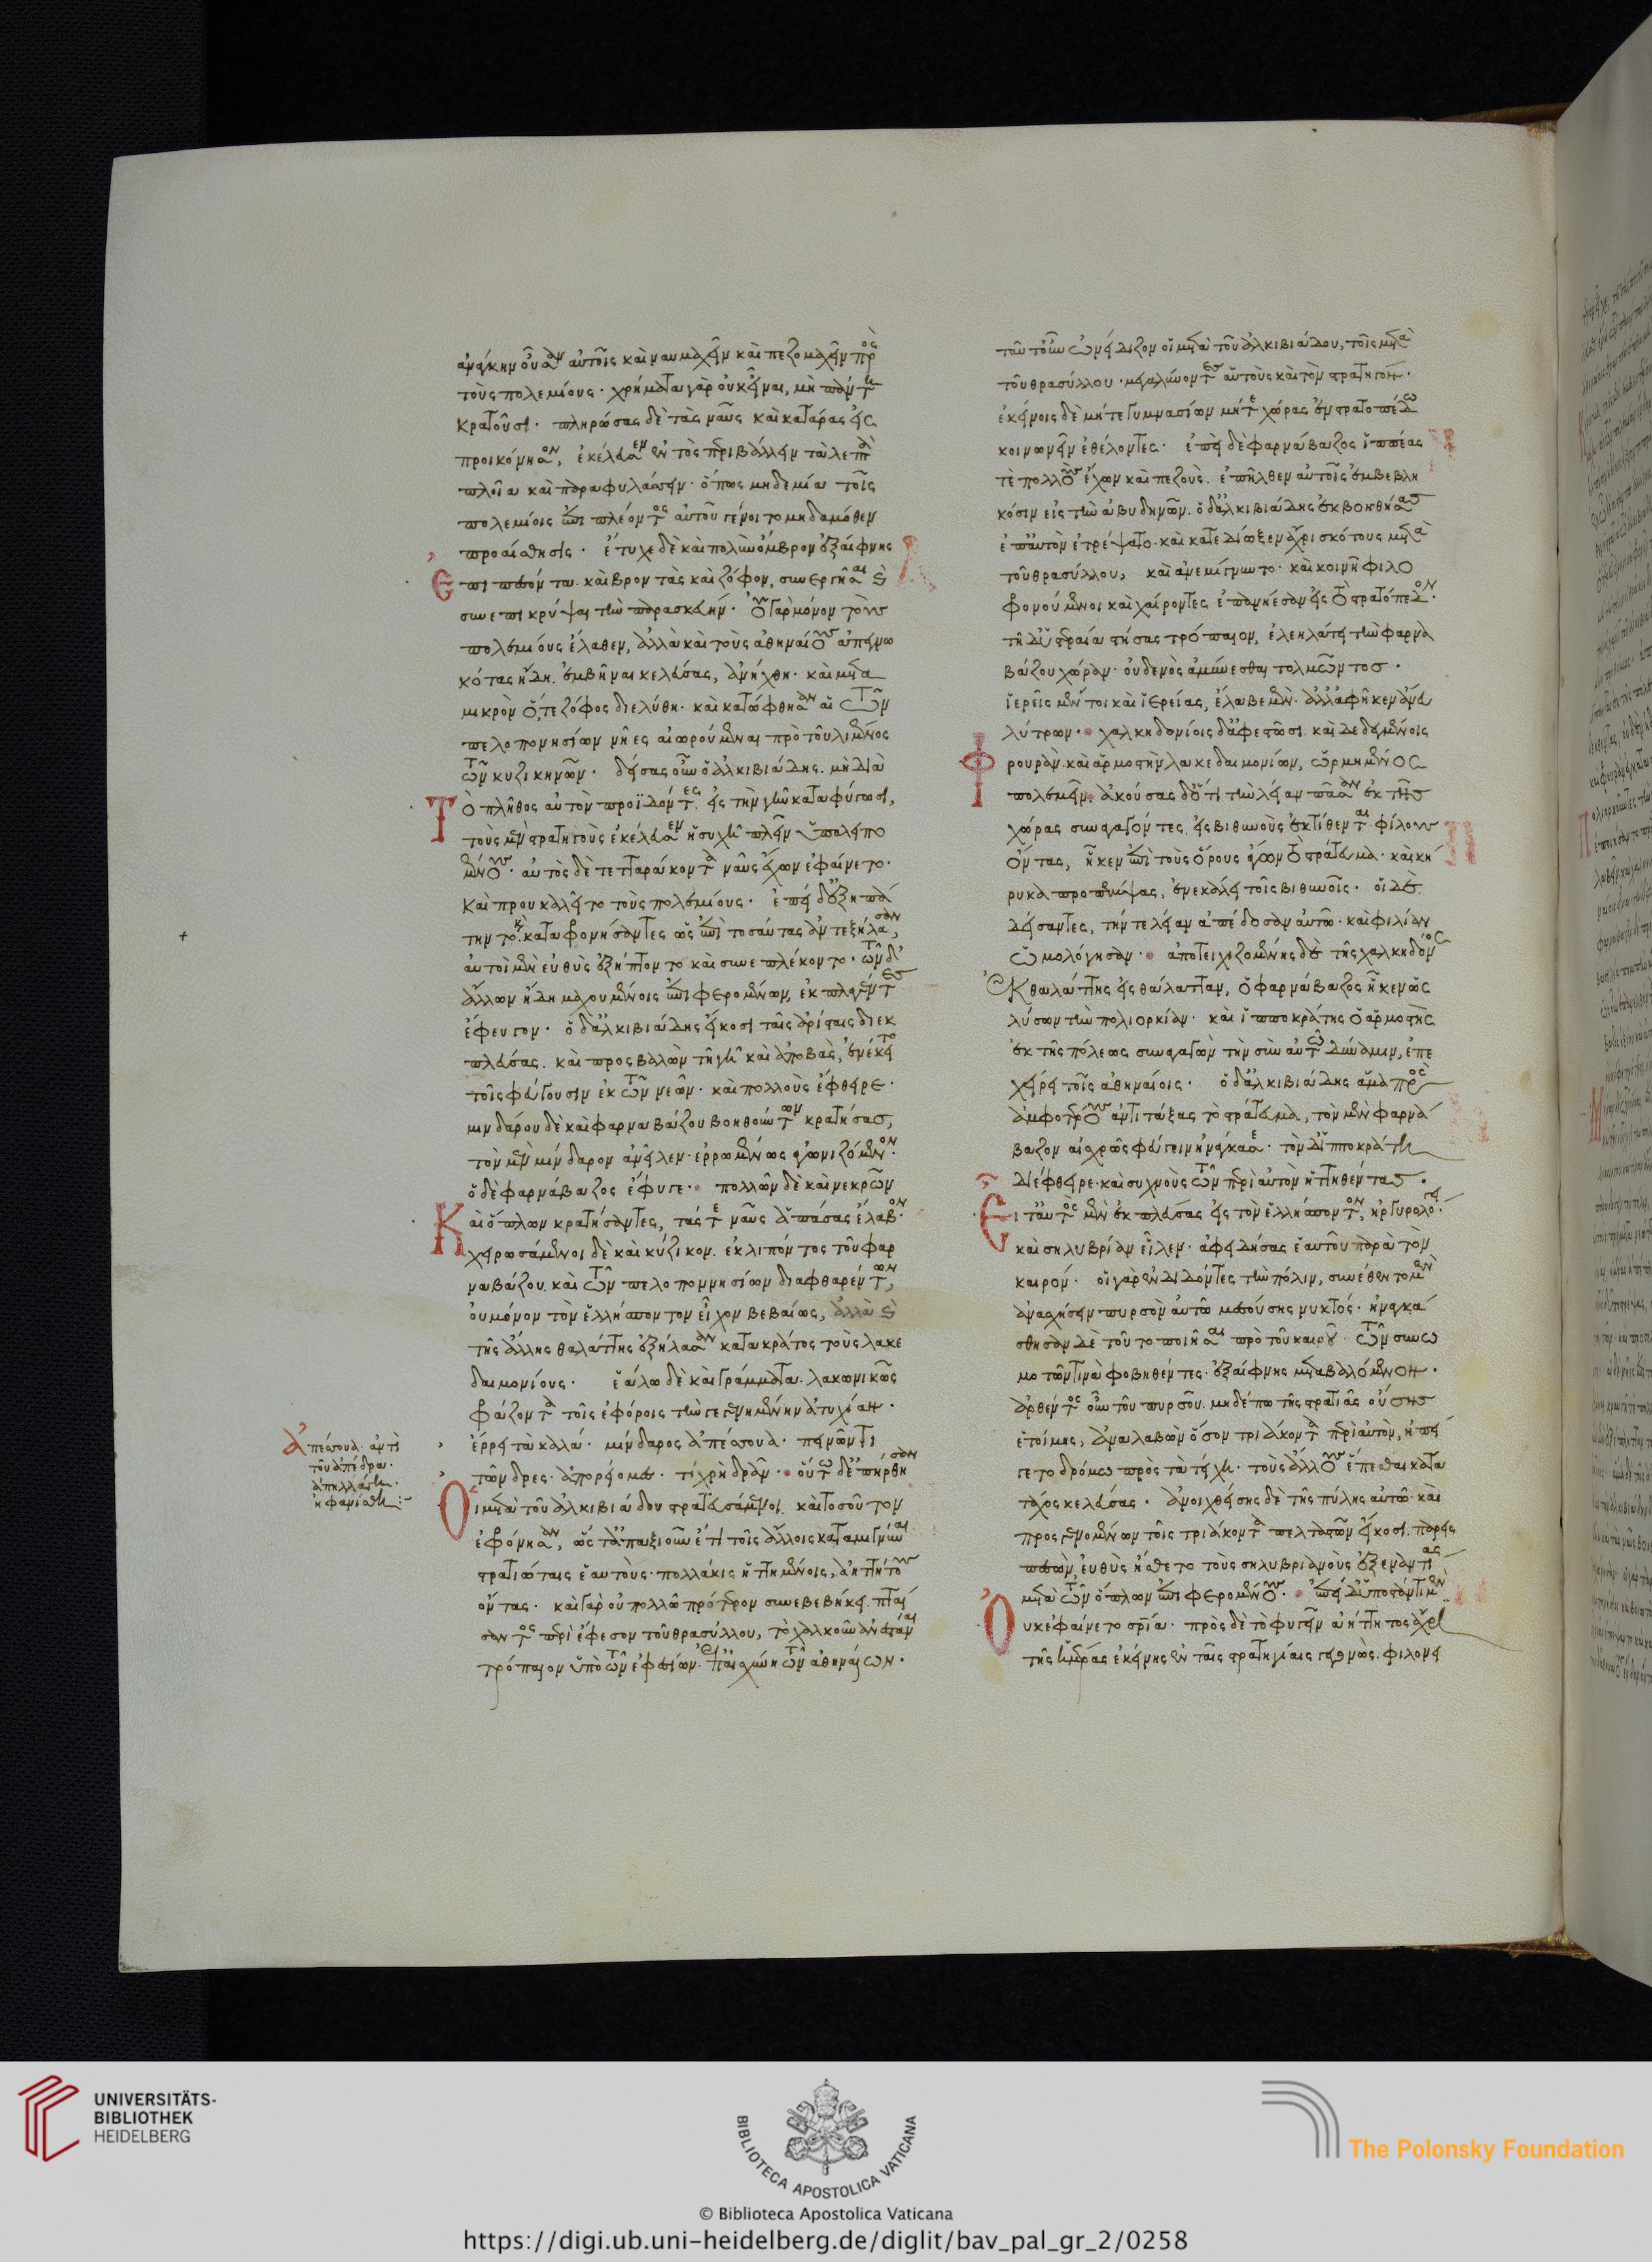 ἀνάγκην οὖσαν αὐτοῖς καὶ ναυμαχεῖν καὶ πεζομαχεῖν πρὸς
τοὺς πολεμίους· χρήματα γὰρ οὐκ εἶναι, μὴ πάντη
κρατοῦσι· πληρώσας δὲ τὰς ναῦς καὶ κατάρας εἰς
προικόνησον, ἐκέλευσεν ἐντὸς περιβάλλειν τὰ λεπτὰ
πλοῖα καὶ παραφυλάσσειν· ὅπως μηδεμία τοῖς
πολεμίοις ἐπιπλέοντος αὐτοῦ γένοιτο μηδαμόθεν
προαίσθησις· ἔτυχε δὲ καὶ πολὺν ὄμβρον ἐξαίφνης
ἐπιπεσόντα. καὶ βροντὰς καὶ ζόφον, συνεργῆσαι καὶ
συνεπικρύψαι τὴν παρασκευήν· οὐ γὰρ μόνον τοὺς
πολεμίους ἔλαθεν, ἀλλὰ καὶ τοὺς ἀθηναίους ἀπεγνω
κότας ἤδη. ἐμβῆναι κελεύσας, ἀνήχθη· καὶ μετὰ
μικρὸν ὅ,τε ζόφος διελύθη· καὶ κατώφθησαν αἱ τῶν
πελοπονησίων νῆες αἰωρούμεναι πρὸ τοῦ λιμένος
τῶν κυζικηνῶν· δείσας οὖν ὁ ἀλκιβιάδης. μὴ διὰ
Τὸ πλῆθος αὐτὸν προϊδόντες. εἰς τὴν γῆν καταφύγωσι,
τοὺς μὲν στρατηγοὺς ἐκέλευσεν ἡσυχῆ πλεῖν ὑπολειπο
μένους· αὐτὸς δὲ τετταράκοντα ναῦς ἔχων ἐφαίνετο·
καὶ προυκαλεῖτο τοὺς πολεμίους· ἐπεὶ δ' ἐξηπά
τηντο· καὶ καταφρονήσαντες ὡς ἐπὶ τοσαύτας ἀντεξήλασαν,
αὐτοὶ μὲν εὐθὺς ἐξήπτοντο καὶ συνεπλέκοντο· τῶν δ'
ἄλλων ἤδη μαχομένοις ἐπιφερομένων, ἐκπλαγέντες
ἔφευγον· ὁ δ' ἀλκιβιάδης εἴκοσι ταῖς ἀρίσταις διεκ
πλεύσας. καὶ προσβαλὼν τῆ γῆ καὶ ἀποβὰς, ἐνέκειτο
τοῖς φεύγουσιν ἐκ τῶν νεῶν· καὶ πολλοὺς ἔφθειρε·
μινδάρου δὲ καὶ φαρναβάζου βοηθούντων κρατήσας,
τὸν μὲν μίνδαρον ἀνεῖλεν· ἐρρωμένως ἀγωνιζόμενον·
ὁ δὲ φαρνάβαζος ἔφυγε· πολλῶν δὲ καὶ νεκρῶν
Καὶ ὅπλων κρατήσαντες, τάς τε ναῦς ἁπάσας ἔλαβον·
χειρωσάμενοι δὲ καὶ κύζικον. ἐκλιπόντος τοῦ φαρ
ναβάζου. καὶ τῶν πελοποννησίων διαφθαρέντων,
οὐ μόνον τὸν ἑλλήσποντον εἶχον βεβαίως, ἀλλὰ καὶ
τῆς ἄλλης θαλάττης ἐξήλασαν κατακράτος τοὺς λακε
δαιμονίους· ἑάλω δὲ καὶ γράμματα. λακωνικῶς
φράζοντα τοῖς ἐφόροις τὴν γεγενημένην ἀτυχίαν·
ἔρρει τὰ καλά· μίνδαρος ἀπέσσουα· πεινῶντι
τὦνδρες· ἀπορέομες· τί χρὴ δρᾶν· οὕτω δ' ἐπήρθησαν
Οἱ μετὰ τοῦ ἀλκιβιάδου στρατευσάμενοι. καὶ τοσοῦτον
ἐφρόνησαν, ὥστ' ἀπαξιοῦν ἔτι τοῖς ἄλλοις καταμιγνύναι
στρατιώταις ἑαυτοὺς πολλάκις ἡττημένοις, ἀηττήτους
ὄντας· καὶ γὰρ οὐ πολλῶ πρότερον συνεβεβήκει. πταί
σαντος περὶ ἔφεσον τοῦ θρασύλλου, τὸ χαλκοῦν ἀνεστάναι
τρόπαιον ὑπὸ τῶν ἐφεσίων· ἐπ' αἰσχύνη τῶν ἀθηναίων.
ἀπέσσουα· ἀντὶ
τοῦ ἀπέδρα·
ἀπηλλάγη·
ἠφανίσθη:~
ταῦτ' οὖν ὠνείδιζον οἱ μετὰ τοῦ ἀλκιβιάδου, τοῖς μετὰ
τοῦ θρασύλλου· μεγαλύνοντες αὑτοὺς καὶ τὸν στρατηγόν·
ἐκείνοις δὲ μήτε γυμνασίων μήτε χώρας ἐν στρατοπέδω
κοινωνεῖν ἐθέλοντες· ἐπεὶ δὲ φαρνάβαζος ἱππέας
τὲ πολλοὺς ἔχων καὶ πεζοὺς. ἐπῆλθεν αὐτοῖς ἐμβεβλη
κόσιν εἰς τὴν ἀβυδηνῶν. ὁ δ' ἀλκιβιάδης ἐκβοηθήσας
ἐπ' αὐτὸν ἐτρέψατο· καὶ κατεδίωξεν ἄχρι σκότους μετὰ
τοῦ θρασύλλου, καὶ ἀνεμίγνυντο· καὶ κοινῆ φιλο
φρονούμενοι καὶ χαίροντες ἐπανήεσαν εἰς τὸ στρατόπεδον·
τῆ δ' ὑστεραία στήσας τρόπαιον, ἐλεηλάτει τὴν φαρνα
βάζου χώραν· οὐδενὸς ἀμύνεσθαι τολμῶντος·
ἱερεῖς μέντοι καὶ ἱερείας, ἔλαβε μὲν· ἀλλ' ἀφῆκεν ἄνευ
λύτρων· χαλκηδονίοις δ' ἀφεστῶσι. καὶ δεδεγμένοις
Φρουρὰν. καὶ ἁρμοστὴν λακεδαιμονίων, ὡρμημένος
πολεμεῖν. ἀκούσας δ' ὅτι τὴν λείαν πᾶσαν ἐκ τῆς
χώρας συναγαγόντες. εἰς βιθυνοὺς ἐκτίθενται φίλους
ὄντας, ἧκεν ἐπὶ τοὺς ὅρους ἄγων τὸ στράτευμα· καὶ κή
ρυκα προπέμψας, ἐνεκάλει τοῖς βιθυνοῖς· οἱ δὲ
δείσαντες, τήν τε λείαν ἀπέδοσαν αὐτῶ· καὶ φιλίαν
ὡμολόγησαν· ἀποτειχιζομένης δὲ τῆς χαλκηδόνος
Ἐκ θαλάττης εἰς θάλατταν, ὁ φαρνάβαζος ἧκεν ὡς
λύσων τὴν πολιορκίαν· καὶ ἱπποκράτης ὁ ἁρμοστὴς
ἐκ τῆς πόλεως συναγαγὼν τὴν σὺν αὐτῶ δύναμιν, ἐπε
χείρει τοῖς ἀθηναίοις· ὁ δ' ἀλκιβιάδης ἅμα πρὸς
ἀμφοτέρους ἀντιτάξας τὸ στράτευμα, τὸν μὲν φαρνά
βαζον αἰσχρῶς φεύγειν ἠνάγκασε· τὸν δ' ἱπποκράτη
διέφθειρε· καὶ συχνοὺς τῶν περὶ αὐτὸν ἡττηθέντας·
Εἶτ' αὐτὸς μὲν ἐκπλεύσας εἰς τὸν ἑλλήσποντον, ἠργυρολόγει·
καὶ σηλυβρίαν εἷλεν· ἀφειδήσας ἑαυτοῦ παρὰ τὸν
καιρόν· οἱ γὰρ ἐνδιδόντες τὴν πόλιν, συνέθεντο μὲν
ἀνασχήσειν πυρσὸν αὐτῶ μεσούσης νυκτός· ἠναγκά
σθησαν δὲ τοῦτο ποιῆσαι πρὸ τοῦ καιροῦ· τῶν συνω
μοτῶν τινὰ φοβηθέντες· ἐξαίφνης μεταβαλόμενον·
ἀρθέντος οὖν τοῦ πυρσοῦ. μηδέπω τῆς στρατιᾶς οὔσης
ἑτοίμης, ἀναλαβὼν ὅσον τριάκοντα περὶ αὐτὸν, ἠπεί
γετο δρόμω πρὸς τὰ τείχη· τοὺς ἄλλους ἕπεσθαι κατα
τάχος κελεύσας· ἀνοιχθείσης δὲ τῆς πύλης αὐτῶ· καὶ
προσγενομένων τοῖς τριάκοντα πελταστῶν εἴκοσι. παρεισ
πεσὼν, εὐθὺς ἤσθετο τοὺς σηλυβριανοὺς ἐξεναντίας
μετὰ τῶν ὅπλων ἐπιφερομένους· ἐπεὶ δ' ὑποστάντι μὲν
Οὐκ ἐφαίνετο σωτηρία· πρὸς δὲ τὸ φυγεῖν ἀήττητος ἄχρι
τῆς ἡμέρας ἐκείνης ἐν ταῖς στρατηγίαις γεγονὼς. φιλονει
UNIVERSITÄTS-
BIBLIOTHEK
HEIDELBERG
BIBLIOTECA APOSTOLICA VATICANA
The Polonsky Foundation
© Biblioteca Apostolica Vaticana
https://digi.ub.uni-heidelberg.de/diglit/bav_pal_gr_2/0258